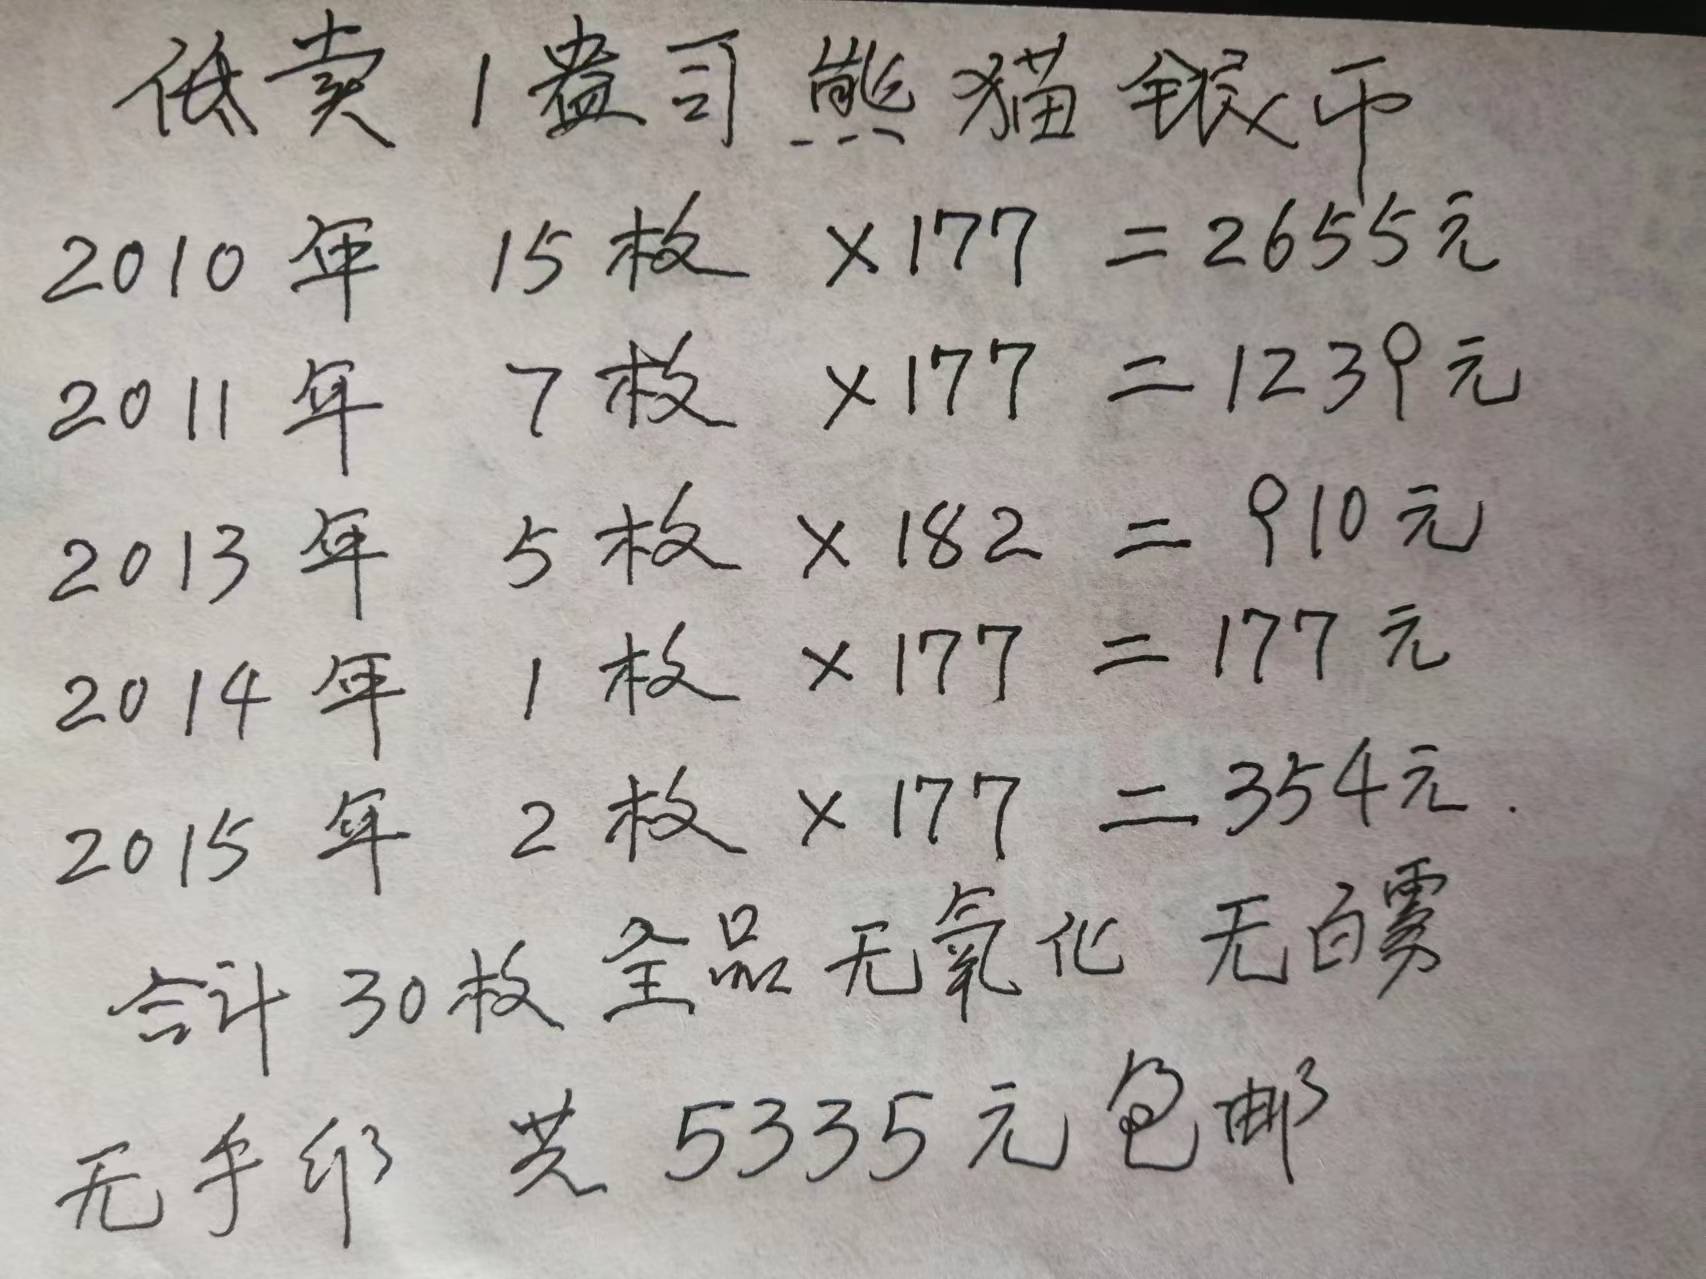 低卖1盎司熊猫银币
2010年 15枚 ×177 =2655元
2011年 7枚 ×177 =1239元
2013年 5枚 ×182 = 910元
2014年 1枚 ×177 = 177元
2015年 2枚 ×177 =354元.
合计30枚全品无氧化 无白雾
无手印 共5335元包邮